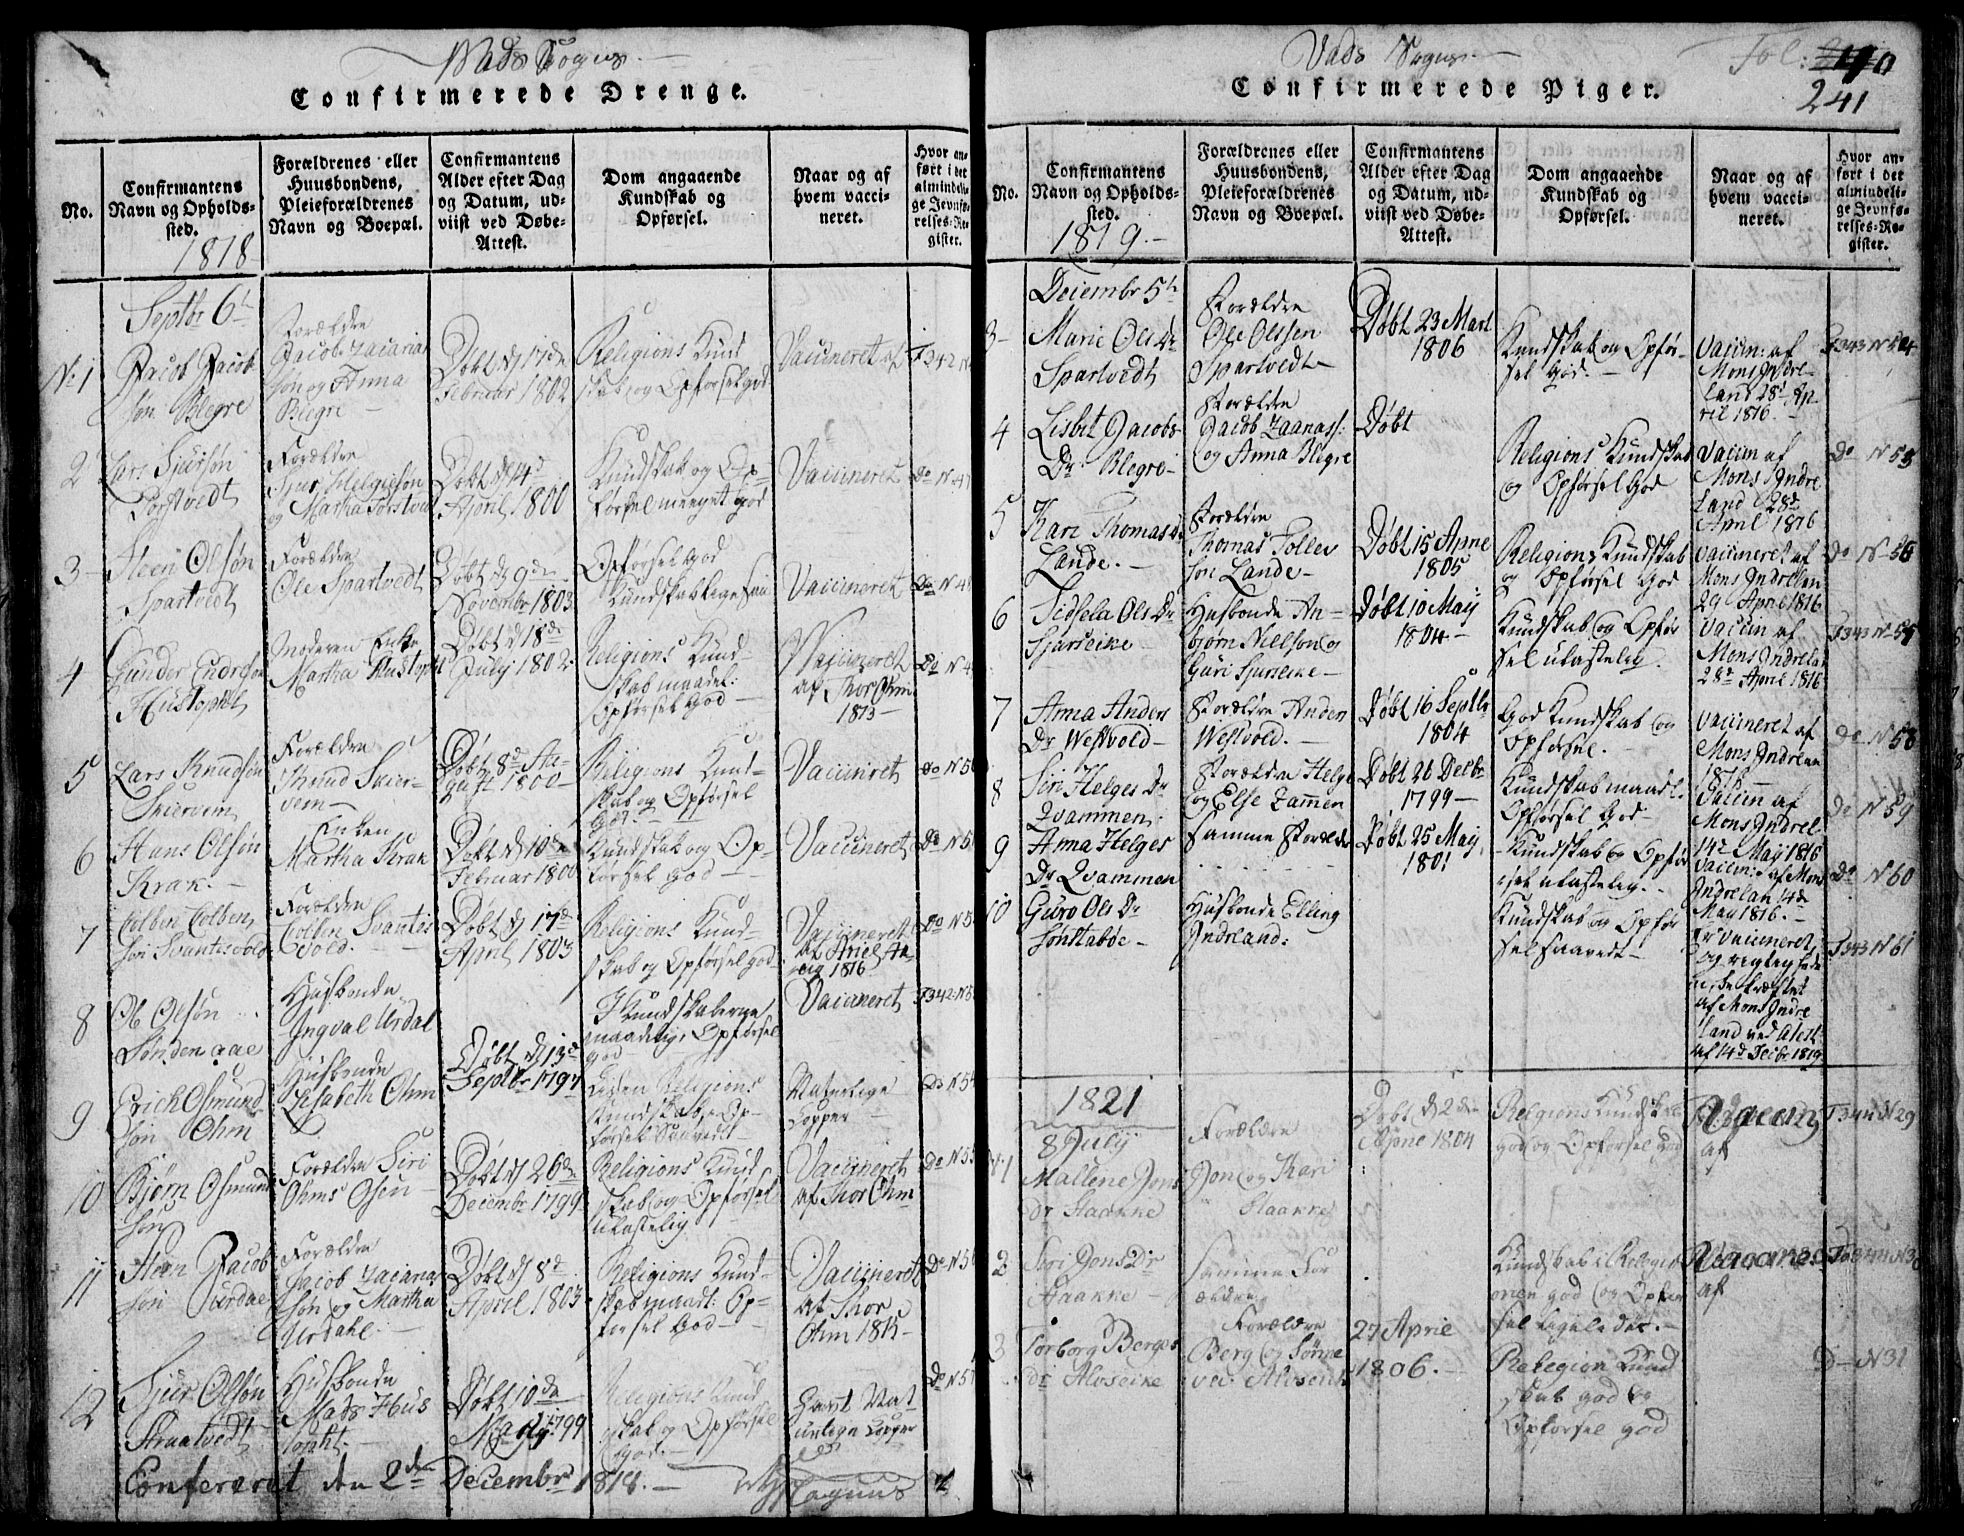 Wads Sogns.
Confirmerede Drenge.
No.
Confirmantens
Navn og Opholds-
sted.
1818
Forældrenes eller
Huusbondens,
Pleieforældrenes
Navn og Boepæl.
Confirmantens
Alder efter Dag
og Datum, ud-
viist ved Døbe-
Attest.
Dom angaaende
Kundskab og
Opførsel.
Naar og af
hvem vacci-
neret.
Hvor an-
ført i det
almindeli-
ge Jevnfø-
relses-Re-
gister.
Septbr 6te
No 1
Jacob Jacob
søn Blegre
Forældre
Jacob Zacarias
søn og Anna
Blegre
Døbt d 17de
Februar 1802
Religions Kund
skab og Opførsel god
Vaccineret
F 342 N
2
Lars Sjursøn
Forældre
Sjur Helgesøn
og Martha
Døbt d 14d
April 1800
Kundskab og Op-
førsel meeget god
Vaccineret
Do N 47
3
Steen Olsøn
Spartvedt
Forældre
Ole Spartvedt
Døbt d 9de
Novembr 1803
Opførsel god
Kundskab ligesaa
Vaccineret
Do N 4
4
Gunder Endresøn
Hustoptt
Moderen Enke
Martha Hustoptt
Døbt d 18de
July 1802
Religions Kund-
skab maadel:
Opførsel God
Vaccineret
af Thor Ohm
1813
Do N 4
5
Lars Knudsøn
Skiervem
Forældre
Knud Skier-
vem
Døbt 8de Au-
gust 1800
Religions Kund-
skab og Opførsel
God.
Vaccineret
Do N 50
6
Hans Olsøn
Krak.
Enken
Martha Krak
Døbt d 10de
Februar 1800
Kundskab og Op-
førsel god
Vaccineret
Do N 5
7
Tolben Tolben
søn Svantesvold
Forældre
Tolben Svantes
vold.
Døbt d 17de
April 1803
Religions Kund-
skab og Opførsel god
Vaccineret
1816
Do N 5
8
Ole Olsøn
Sønden aae
Husbonde
Ingval Urdal
Døbt d 13d
Septbr 1797
I Kundskaberne
maadelig, Opførsel
god
Vaccineret
F 342 N 5
9
Erich Osmund
søn Ohm
Husbonde
Lisabeth Ohm
Liden Religions
Kundskab, Op-
førsel Saavidt
Naturlige
Copper
Do N 54
10
Bjørn Osmund
søn
Forældre Siri
Ohms Osen
Døbt d 26de
Decembr 1799
Religions Kund
skab og Opførsel
ulastelig
Vaccineret
af Thor Ohm
Do N 55
11
Steen Jacob
søn Uurdae
Forældre
Jacob Zacarias
søn og Martha
Urdahl.
Døbt d 8d
April 1803
Religions Kund-
skab maadl: Op-
førsel God
Vaccineret
af Thor
Ohm 1815
Do N 56
12
Sjur Olsøn
Straatvedt
Husbonde
Mads Huus
tofth.
Døbt 10de
Maij 1799
Religions Kund
skab og Opførsel
god.
Havt Nat
urlige Copper
Do N 57
Confereret den 2den Decembr 1818.
Magnus
Vads Sogns.
Fol:
241
Confirmerede Piger.
No.
Confirmantens
Navn og Opholds-
sted.
1819.
Forældrenes eller
Huusbondens,
Pleieforældrenes
Navn og Boepæl.
Confirmantens
Alder efter Dag
og Datum, ud-
viist ved Døbe-
Attest.
Dom angaaende
Kundskab og
Opførsel.
Naar og af
hvem vacci-
neret.
Hvor an-
ført i det
almindeli-
ge Jevnfø-
relses-Re-
gister.
Decembr 5te
3
Marie Ols Dr
Spartvedt
Forældre
Ole Olssen
Spartvedt
Døbt 23 Mart
1806
Kundskab og Opfør-
sel god.
Vaccin: af
Mons Indre-
land 28d Ap-
ril 1816
4
Lisbet Jacobs
Dr. Blegre
Forældre
Jacob
og Anna Blegre
Døbt
Religions Kundskab
og Opførsel God
Vaccin af
Mons Indre
land 28d
April 1816
Do N 53
5
Kari Thomas Dr
Lande.
Forældre
Thomas Tollev
søn Lande
Døbt 15 Aprie
1805
Religions Kundskab
og Opførsel God
Vaccineret af
Mons Indrelan
29 April 1816
Do N 56
6
Sidsela Ols Dr
Sjurseike
Husbonde An-
bjørn Nielson og
Guri
Døbt 10 Maij
1804
Kundskab og Opfør
sel ulastelig.
Vaccin af
Mons Indrelan
28d April 1816
F 343 N 57
7
Anna Anders
Dr Westvold
Forældre Anders
Westvold.
Døbt 16 Septbr
1804
God Kundskab og
Opførsel.
Vaccineret af
Mons Indrelan
1816
Do N 58
8
Siri Helges Dr
Qvammen.
Forældre Helge
og Else
Døbt 26 Decbr
1799
Kundskab maadl.
Opførsel God
Vaccin af
Mons Indrel.
14d Maij 1816
Do N 59
9
Anna Helges
Dr Qvammen
Samme Forældre
Døbt 25 Maij
1801
Kundskab og Opfør
sel ulastelig.
Vaccin: af Mons
Indrelan 14d
Maij 1816.
Do N 60
10
Guro Ols Dr
Sønstabøe
Husbonde Elling
Indreland.
Kundskab og Opfør
sel saavidt
Er Vaccineret,
og rigtigheden
bekræftet
af Mons Indre
land ved Atest
af 14d Decbr 1819
F 343 N 61
1821
8 Julij
N 1
Mallene Jons
Dr Haakke
Forældre
Jon og Kari
Haakke
Døbt d 2den
Aprie 1804
Religions Kundskab
god og Opførsel god
Vaccin
af
F 344 N 29
2
Siri Jons Dr
Haakke
Samme For
ældre
Kundskab i Religi
onen god og Opfør
sel ligeledes.
af
3
Torborg Bergs
Dr Alvseike
Forældre
Berg og Sørine
27 Aprie
1806.
Religion Kund
skab god og
Opførsel god
D N 31